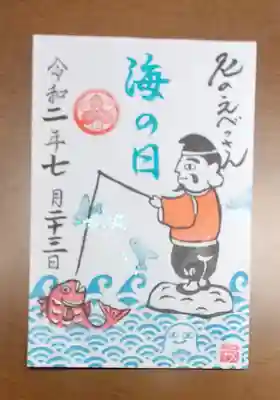 尼のえべっさん
海の日
令和二年七月二十三日